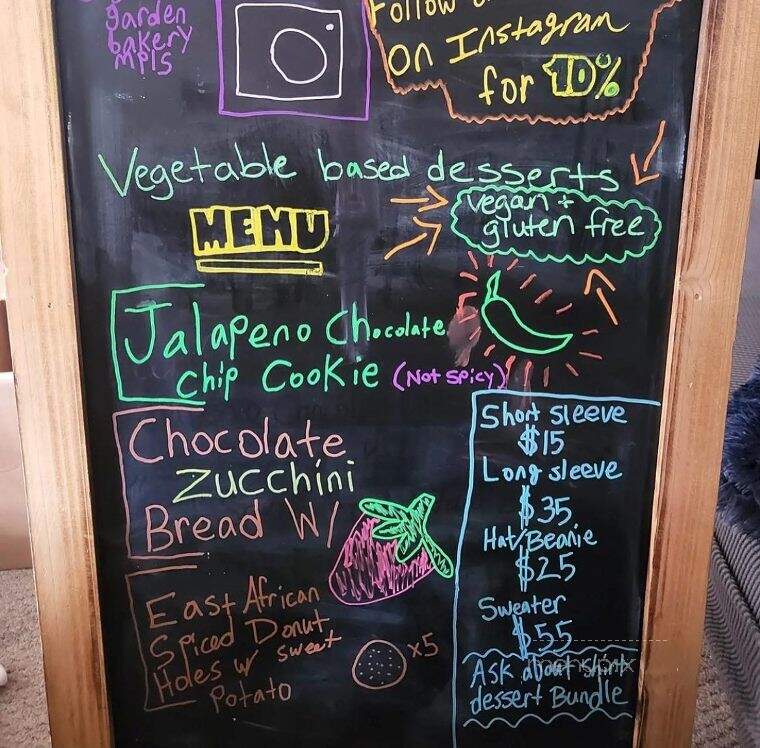 garden
bakery
MPLS
Follow
On Instagram
for 10%
Vegetable based desserts
MENU
vegan +
gluten free
Jalapeno Chocolate
Chip Cookie (Not Spicy)
Chocolate
Zucchini
Bread W/
East African
Spiced Donut
Holes w/ sweet
Potato
x5
Short sleeve
$15
Long sleeve
$35
Hat/Beanie
$25
Sweater
$55
Ask about shirt
dessert Bundle